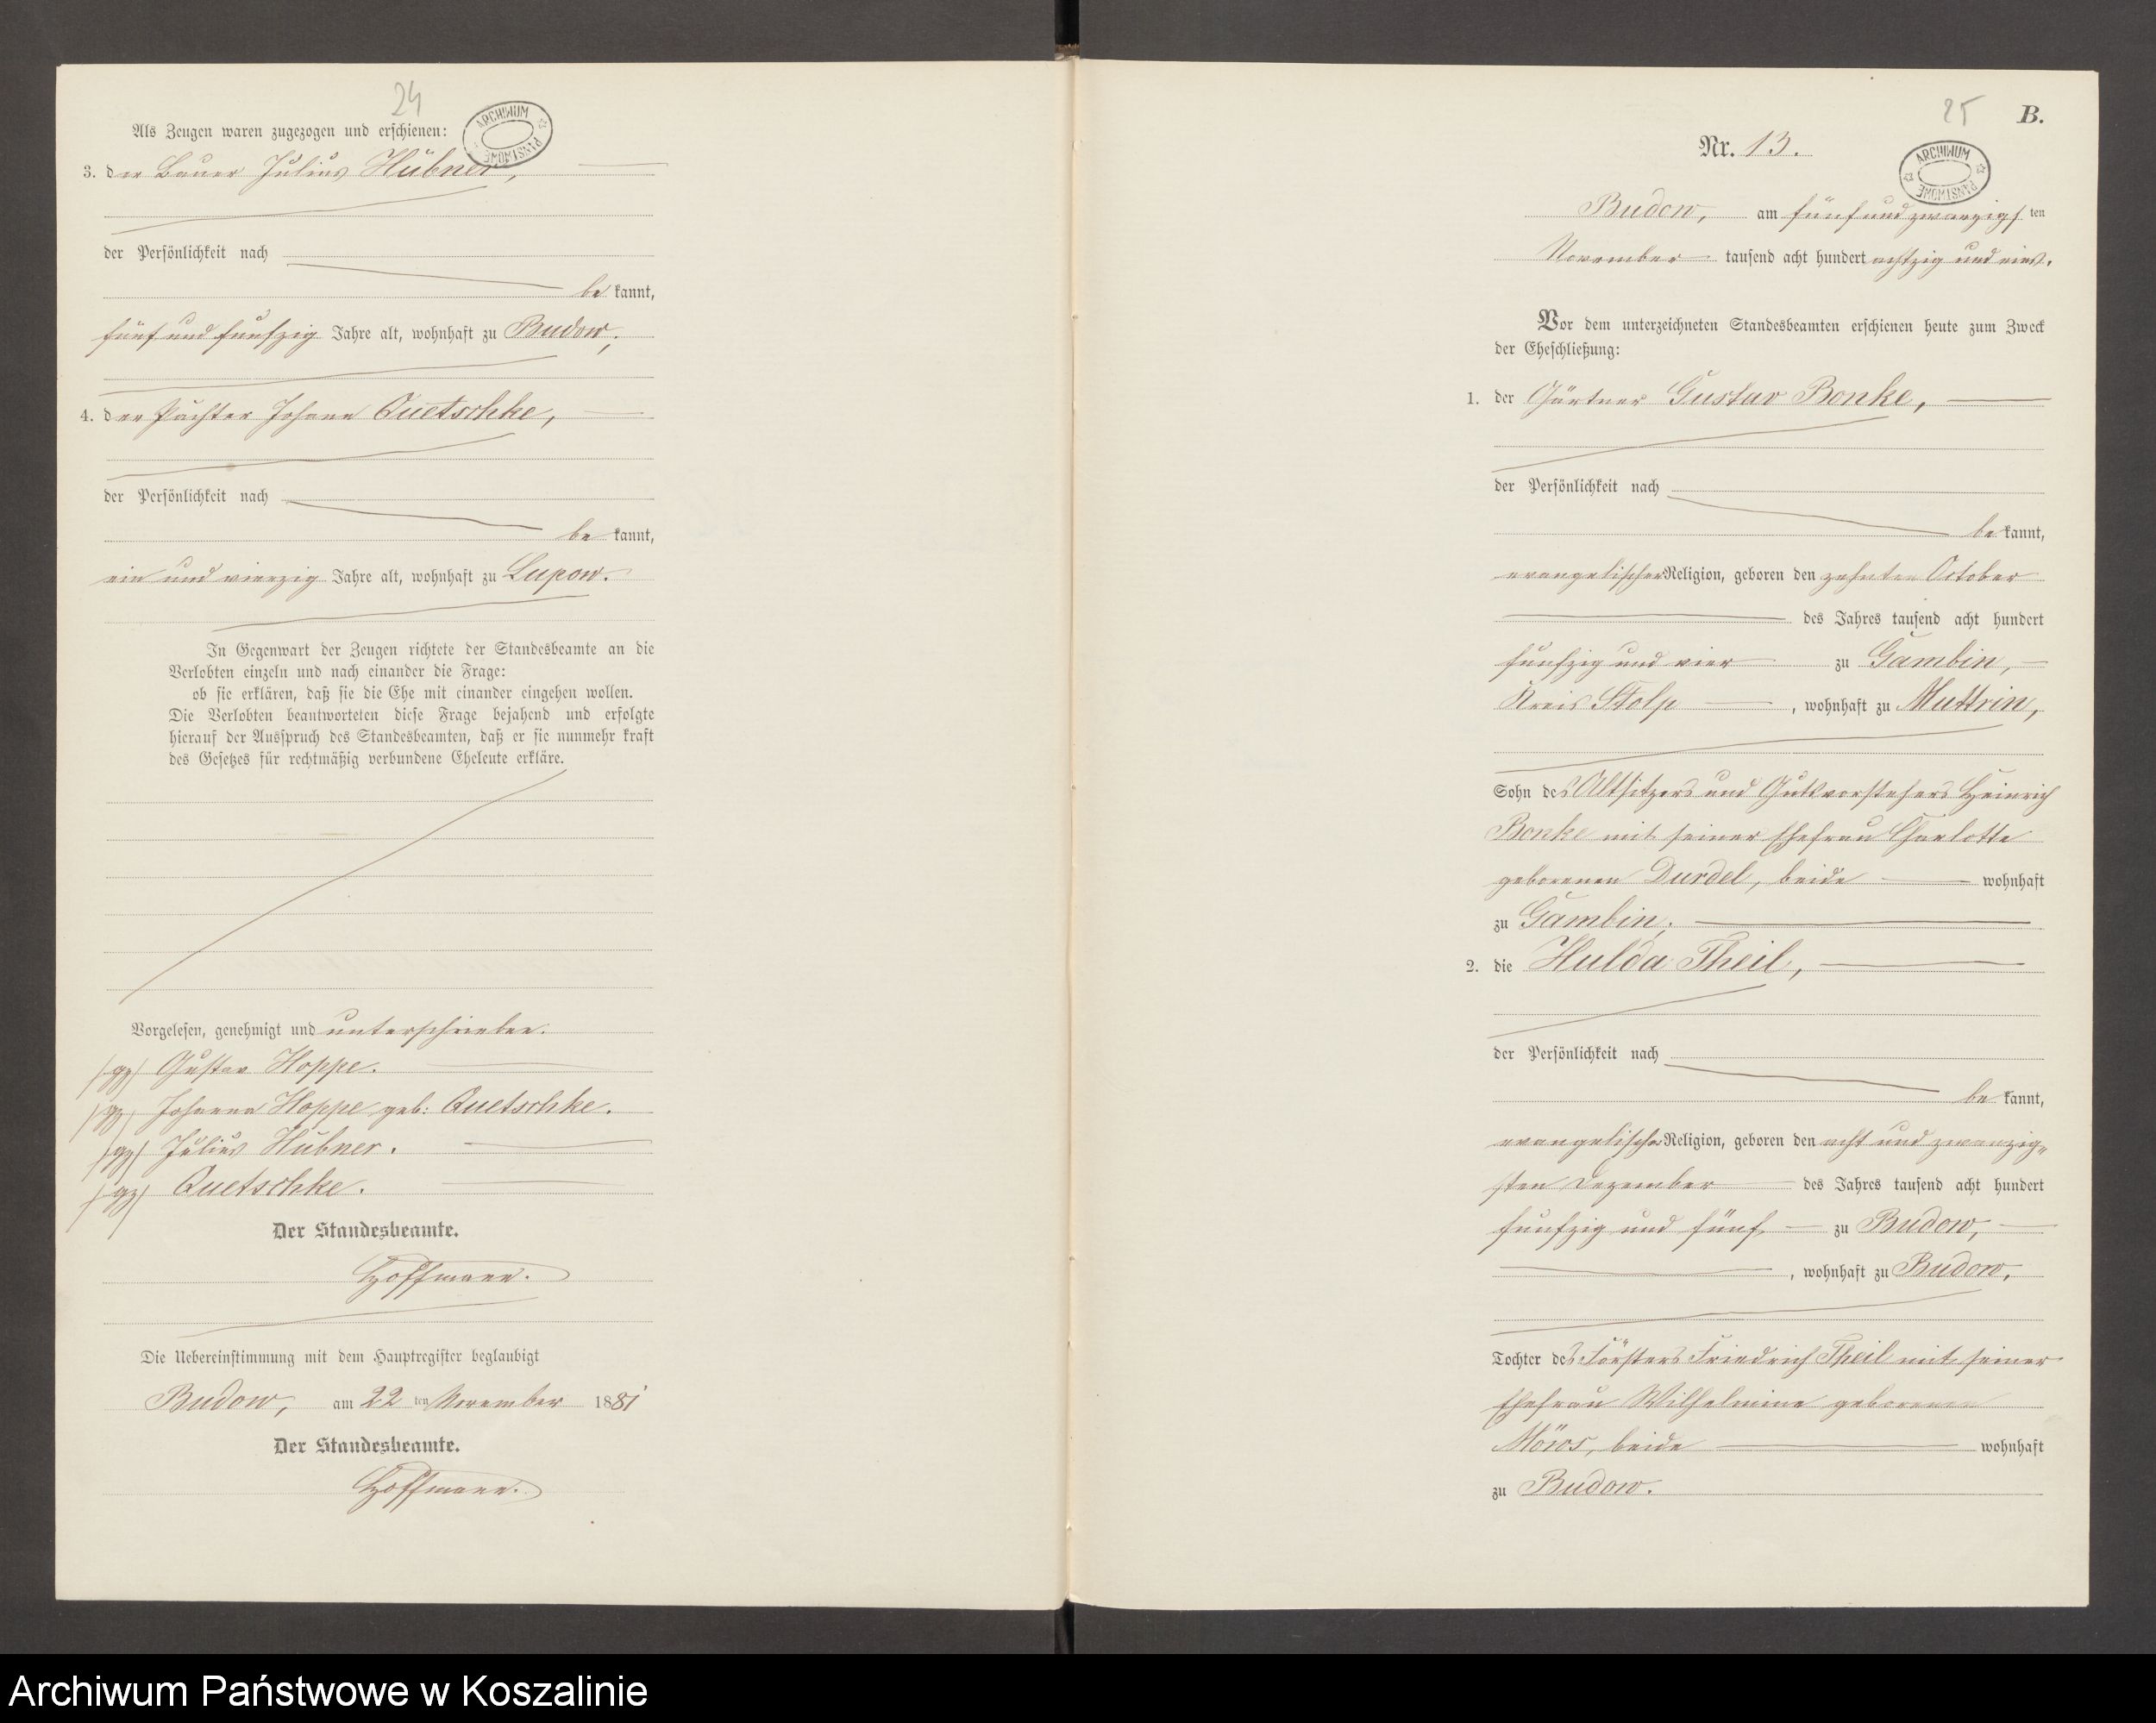 24
ARCHIWUM PAŃSTWOWE
Als Zeugen waren zugezogen und erschienen:
3. der Bauer Julius Hübner,
der Persönlichkeit nach
be kannt,
fünf und funfzig Jahre alt, wohnhaft zu Budow;
4. der Pächter Johann Quetschke,
der Persönlichkeit nach
be kannt,
ein und vierzig Jahre alt, wohnhaft zu Lupow.
In Gegenwart der Zeugen richtete der Standesbeamte an die
Verlobten einzeln und nach einander die Frage:
ob sie erklären, daß sie die Ehe mit einander eingehen wollen.
Die Verlobten beantworteten diese Frage bejahend und erfolgte
hierauf der Ausspruch des Standesbeamten, daß er sie nunmehr kraft
des Gesetzes für rechtmäßig verbundene Eheleute erkläre.
Vorgelesen, genehmigt und unterschrieben.
/gz/ Gustav Hoppe.
/gz/ Johanna Hoppe geb: Quetschke.
/gz/ Julius Hübner.
/gz/ Quetschke.
Der Standesbeamte.
Hoffmann.
Die Uebereinstimmung mit dem Hauptregister beglaubigt
Budow, am 22 ten November 1881
Der Standesbeamte.
Hoffmann.
25 B.
Nr. 13.
ARCHIWUM PAŃSTWOWE
Budow, am fünf und zwanzigs ten
November tausend acht hundert achtzig und eins.
Vor dem unterzeichneten Standesbeamten erschienen heute zum Zweck
der Eheschließung:
1. der Gärtner Gustav Bonke,
der Persönlichkeit nach
be kannt,
evangelischer Religion, geboren den zehnten October
des Jahres tausend acht hundert
funfzig und vier zu Gambin,
Kreis Stolp, wohnhaft zu Muttrin,
Sohn des Altsitzers und Gutsvorstehers Heinrich
Bonke mit seiner Ehefrau Charlotte
geborenen Durdel, beide wohnhaft
zu Gambin;
2. die Hulda Theil,
der Persönlichkeit nach
be kannt,
evangelischer Religion, geboren den acht und zwanzig-
sten Dezember des Jahres tausend acht hundert
funfzig und fünf zu Budow,
, wohnhaft zu Budow,
Tochter des Försters Friedrich Theil mit seiner
Ehefrau Wilhelmine geborenen
beide wohnhaft
zu Budow.
Archiwum Państwowe w Koszalinie